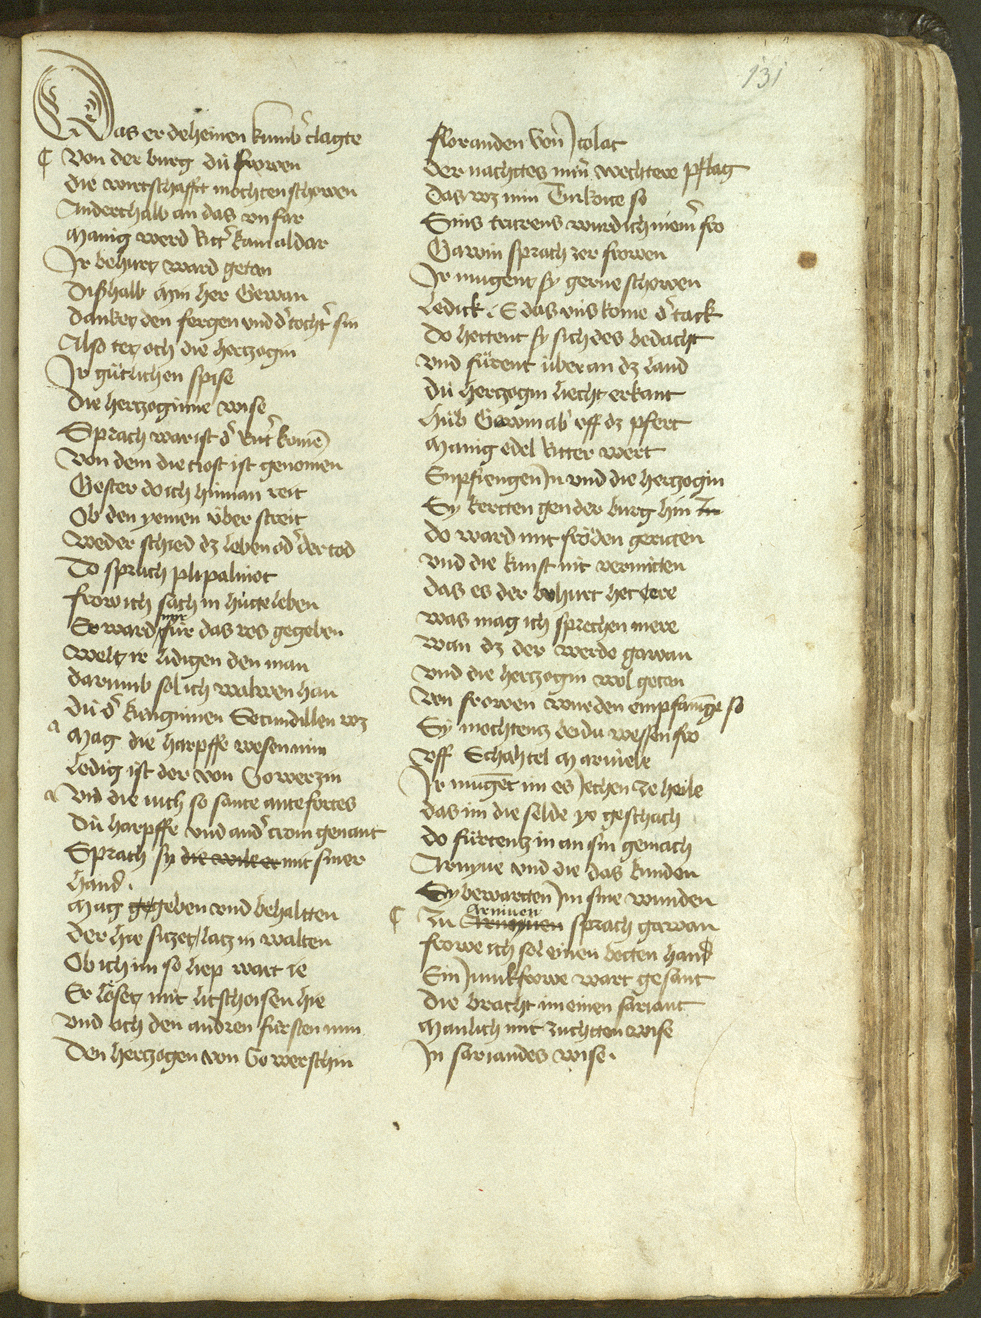 131
Das er deheinen kumb' clagte
Von der burg dú frowen
die wirtschafft mochten schowen
Anderthalb an das vrfar
Manig werd Ritt' kam aldar
Ir behurt ward getan
Dißhalb min her Gewan
dancket den fergen vnd d' tocht' sin
Also tet och die hertzogin
Ir gütlichen spise
Die hertzoginne wise
Sprach war ist d' ritt' komē
Von dem die tiost ist genomen
Gester do ich hinnan reit
Ob den yemen über streit
Weder schied dz leben od' der tod
Do sprach plipalinot
frow ich sach in hútte leben
Er ward mir für das ros gegeben
Welt ir lidigen den man
darumb sol ich walwen han
dú d' kúnginnen Secundillen wz
Mag die harpffe wesen min
Ledig ist der von Gowerzin
Vnd die úch so sante antefortes
Dú harpffe vnd and' crom genant
Sprach sy die wil er mit siner
hand.
Mag ge geben vnd behaltten
Der hie sitzet latz in walten
Ob ich im so liep wart ie
Er löset mir litschoisen hie
Vnd och den andren fürsten min
Den hertzogen von Gowerschin
floranden von Itolac
Der nachttes min wechtere pflag
Das wz min Turkoite so
Sins trurens wurd ich niem' fro
Gawin sprach zer frowen
Ir mugent sy gerne schowen
Ledick. E das vns kome d' tack
Do hettent sy sich des bedacht
Vnd fürent über an dz land
dú hertzogin liecht erkant
Hüb Gawin ab' vff dz pfert
Manig edel Ritter wert
Enpfiengen In vnd die hertzogin
Sy kertten gen der burg hin In
do ward mit fröden geritten
Vnd die kunst nit vermitten
das es der behurt het ere
was mag ich sprechen mere
Wan dz der werde gawan
Vnd die hertzogin wol getan
Von frowen wurden empfangē so
Sy mochtentz beidu wessen fro
Vff Schahtel Marviele
Ir mugēt im es Jechen ze heile
das im die selde ye geschach
do fürtentz in an sin gemach
Arnyue vnd die das kunden
Sy bewartten Im sine wunden
Zu Arniuen Arnyuen sprach gawan
frowe ich sol einen botten hand
Ein Junkfrowe wart gesant
Die bracht im einen sariant
Manlich mit zuchtten wise
In sariandes wise.